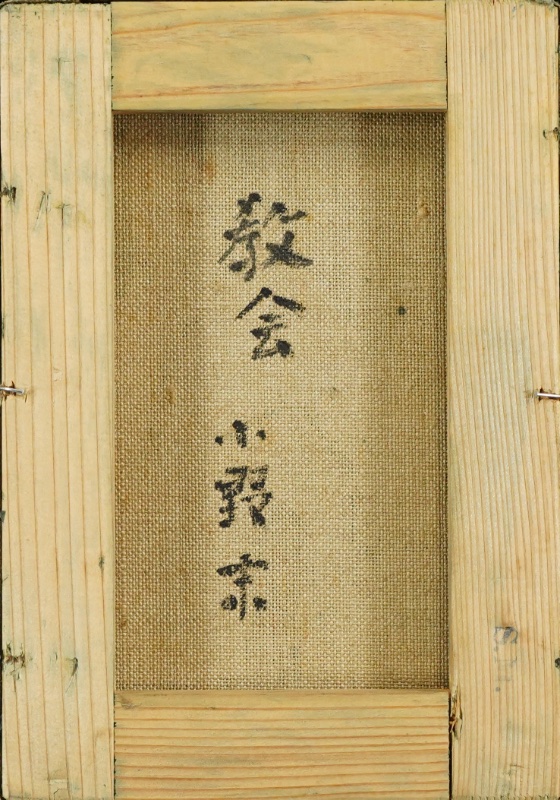 教会 小野末